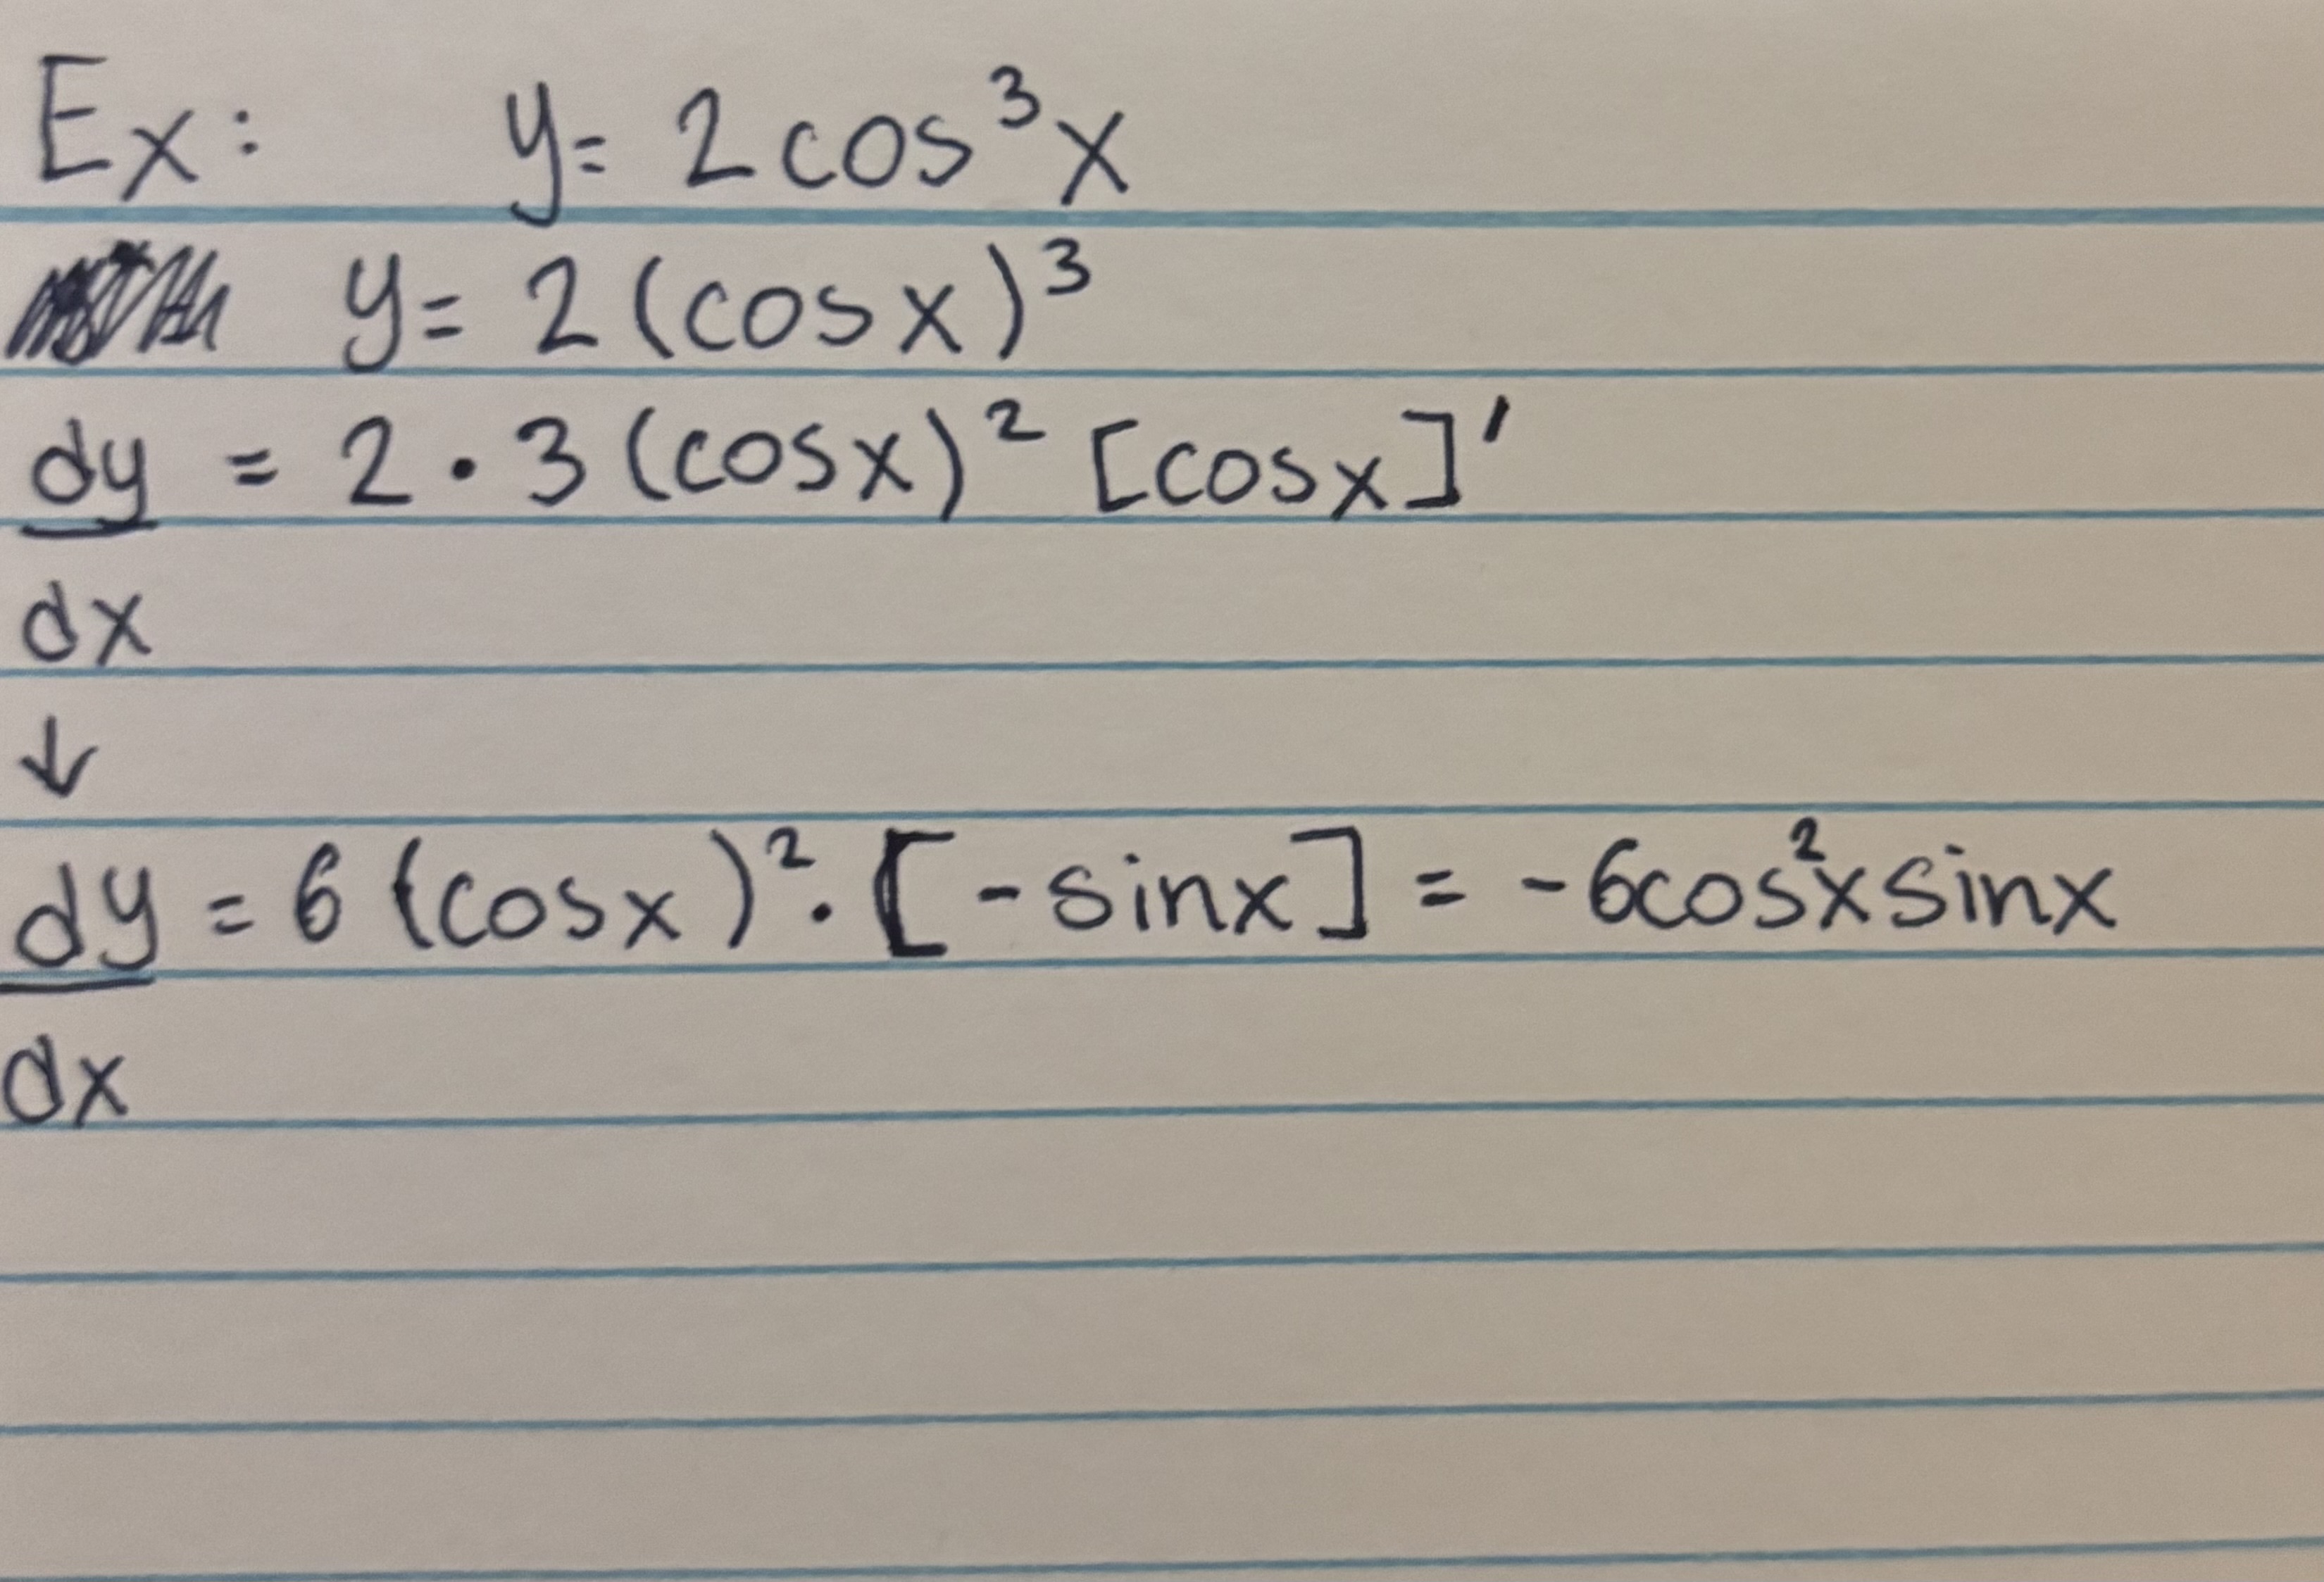 Ex: y= 2cos³x
y= 2(cosx)³
dy = 2·3(cosx)² [cosx]'
dx
↓
dy = 6(cosx)²·[-sinx] = -6cos²xsinx
dx